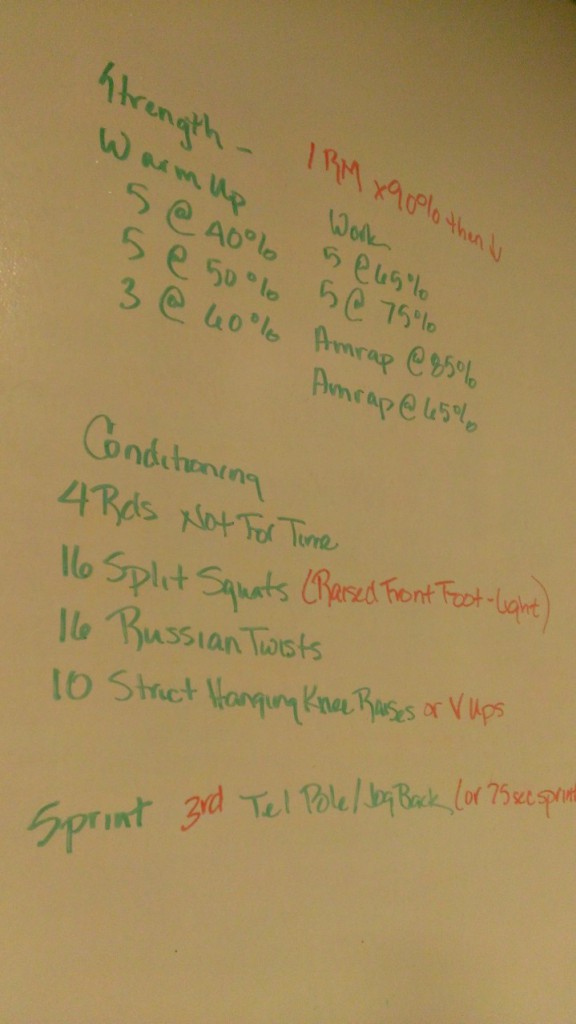 Strength -
1 RM x 90% then ↓
Warm Up
5 @ 40%
5 @ 50%
3 @ 60%
Work
5 @ 65%
5 @ 75%
Amrap @ 85%
Amrap @ 65%
Conditioning
4 Rds Not For Time
16 Split Squats (Raised Front Foot - Light)
16 Russian Twists
10 Strict Hanging Knee Raises or V Ups
Sprint 3rd Tel Pole / Jog Back (or 75 sec sprint